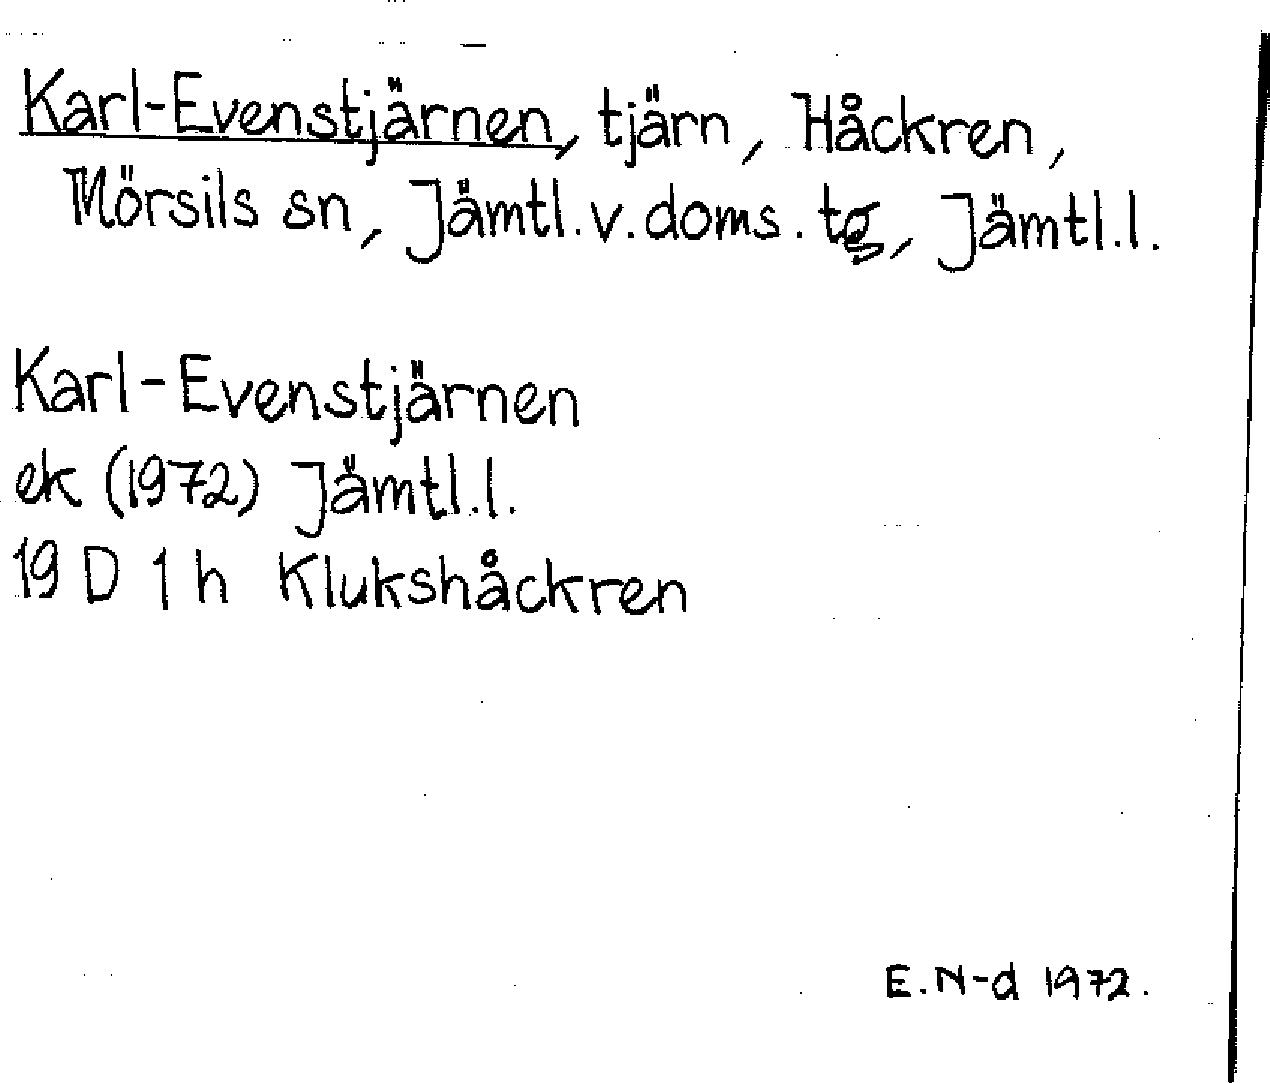 Karl-Evenstjärnen, tjärn, Håckren,
Mörsils sn, Jämtl.v.doms.tg, Jämtl.l.
Karl-Evenstjärnen
ek (1972) Jämtl.l.
19 D 1 h Klukshåckren
E.N-d 1972.